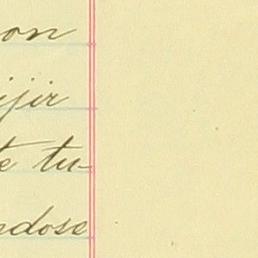 on
ijir
te tu-
ndose